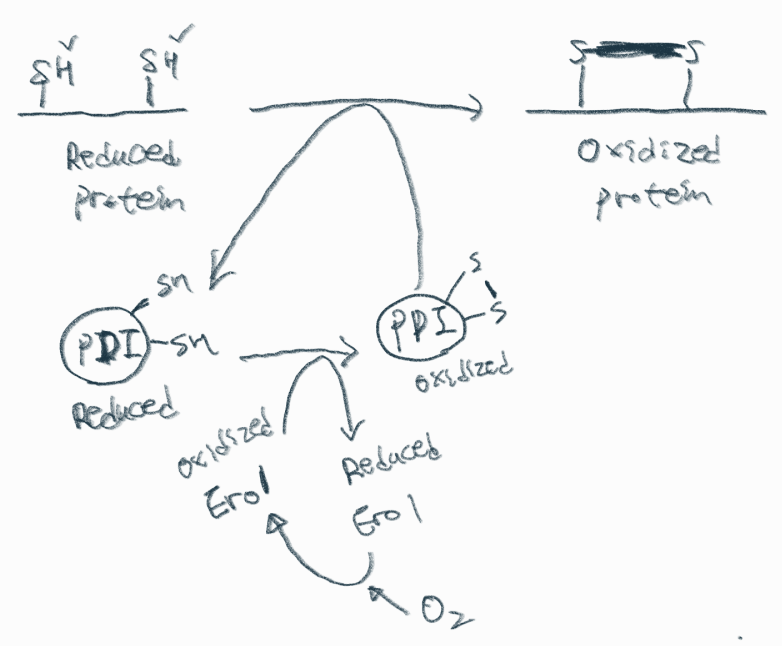 SH SH
S S
Reduced
protein
Oxidized
protein
SH
PDI SH
Reduced
S
PDI S
oxidized
oxidized
Ero1
Reduced
Ero1
O2